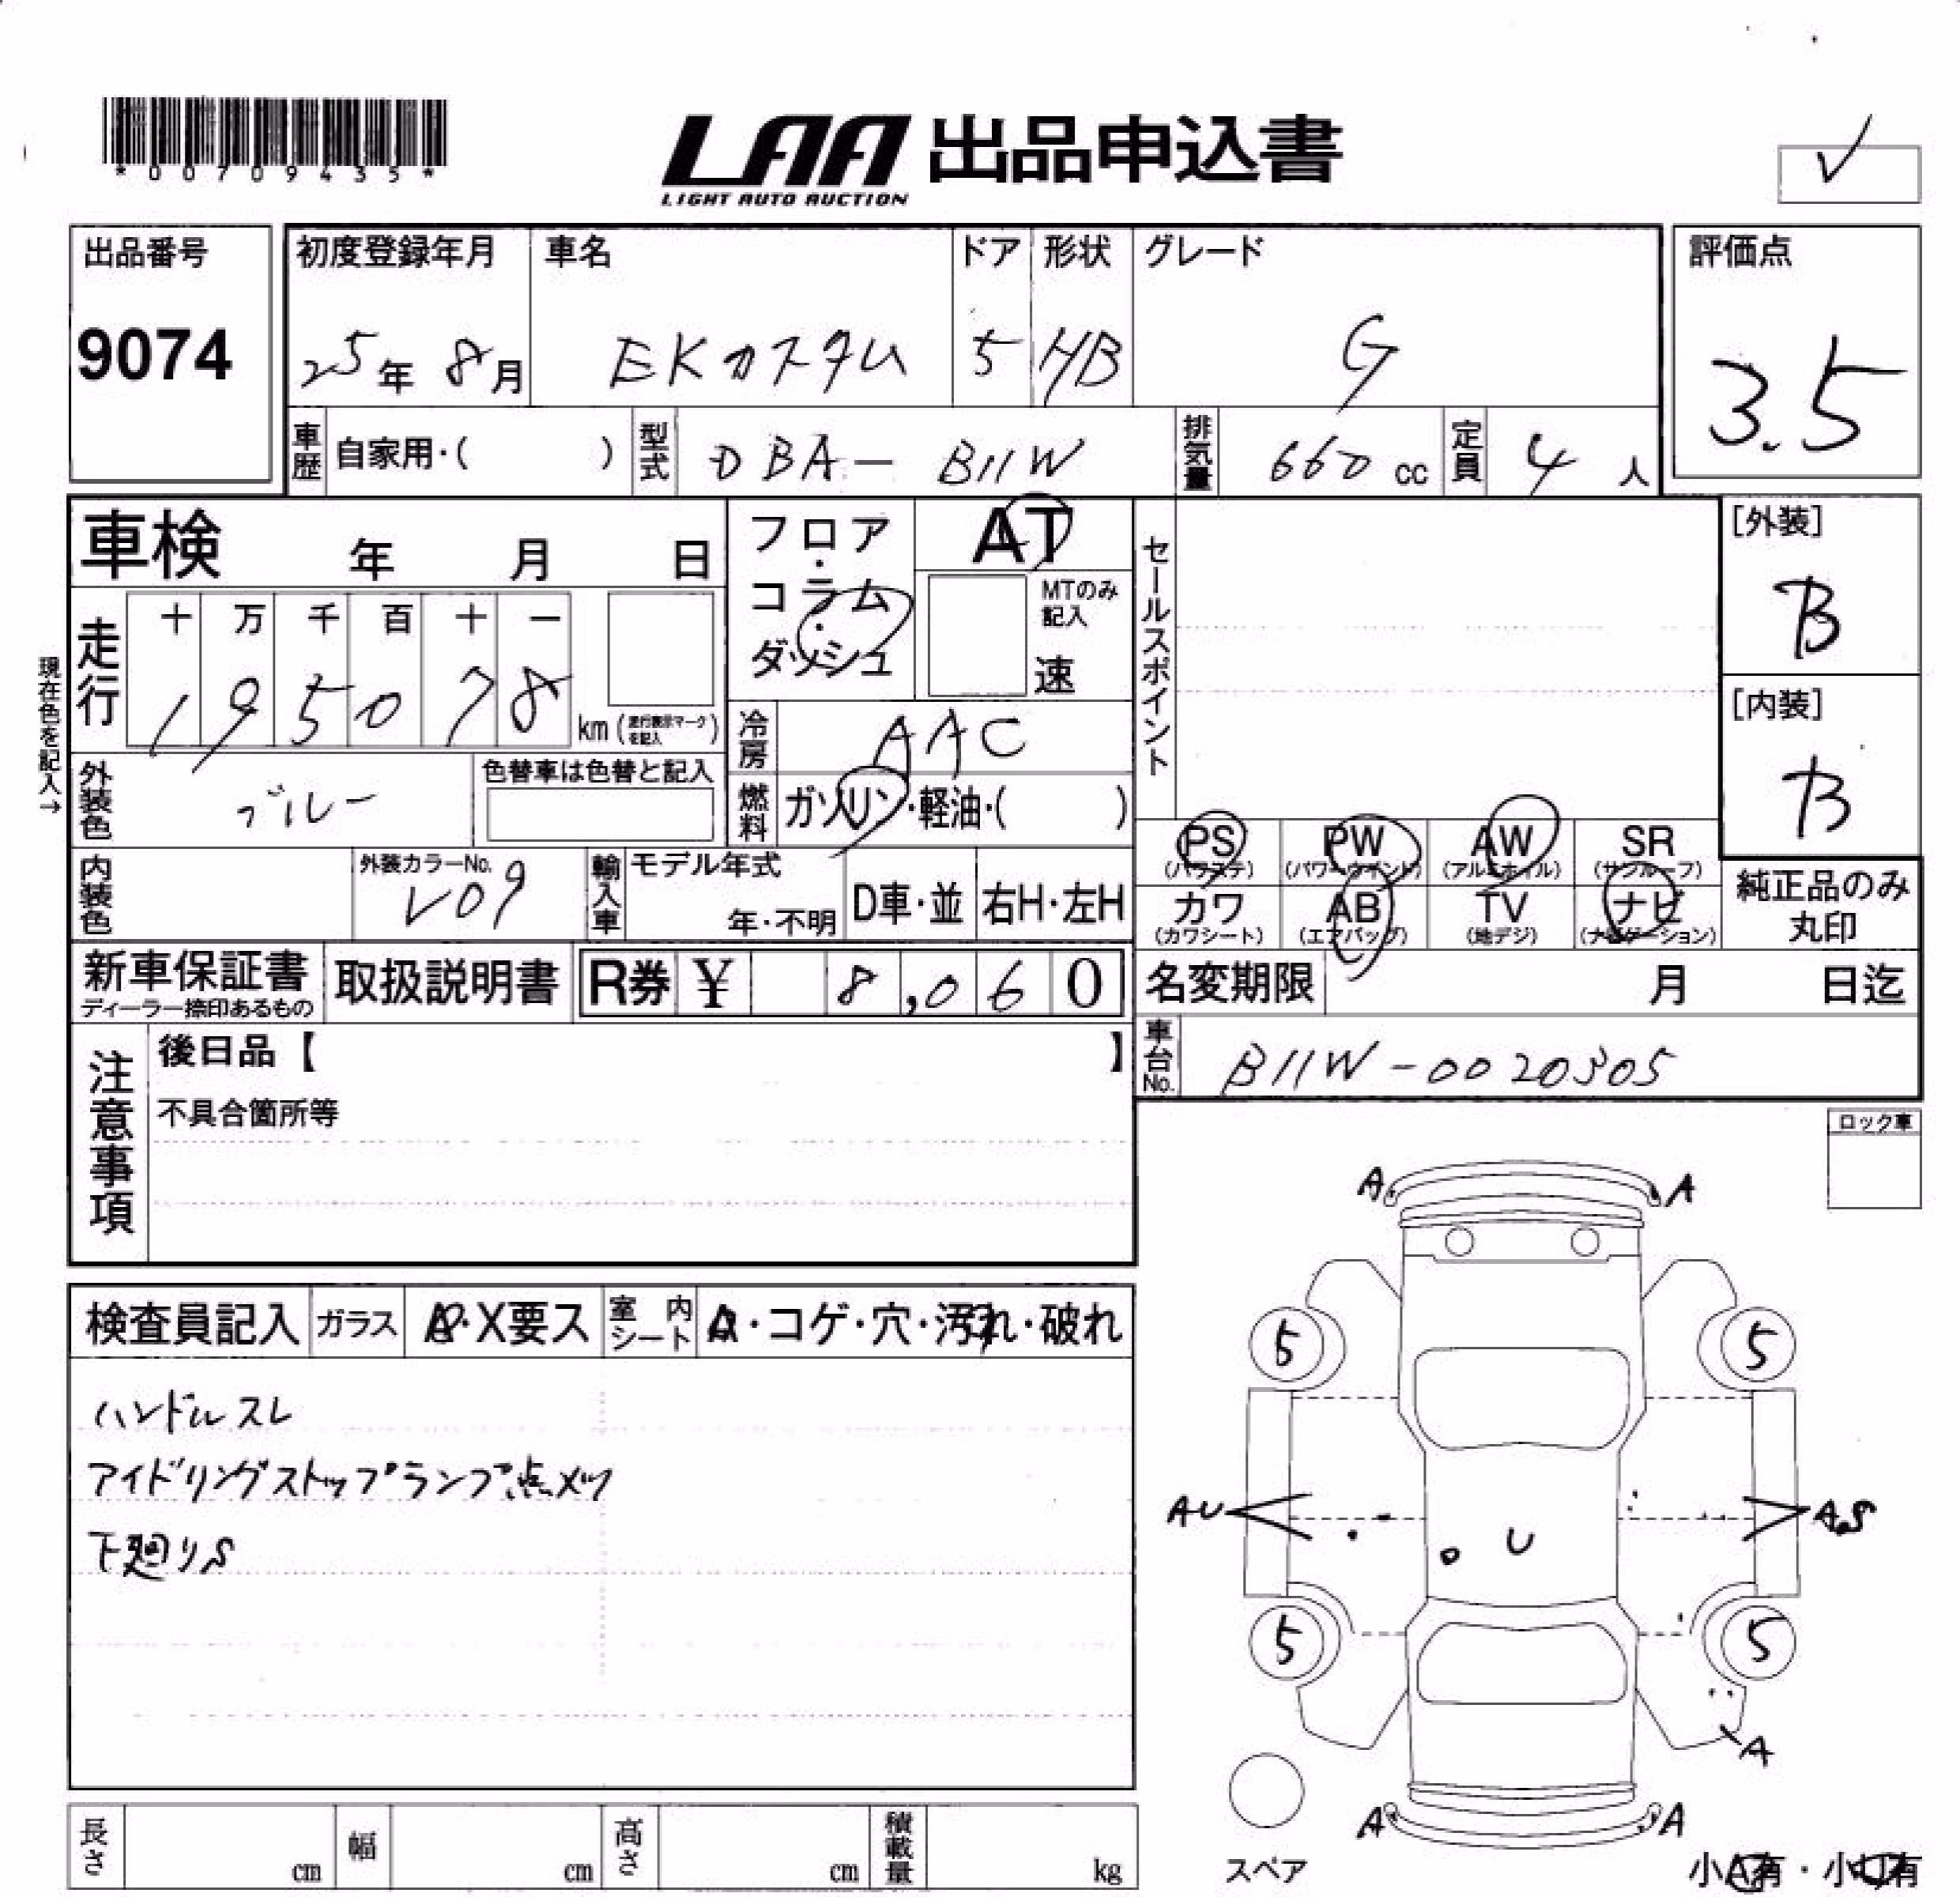 *00709435*
LAA 出品申込書
LIGHT AUTO AUCTION
出品番号 初度登録年月 車名 ドア 形状 グレード 評価点
9074 25年 8月 EKカスタム 5 HB G 3.5
車歴 自家用・( ) 型式 DBA- B11W 排気量 660 cc 定員 4 人
車検 年 月 日 フロア・コラム・ダッシュ AT
MTのみ記入 速
セールスポイント
[外装]
B
[内装]
B
現在色を記入→
走行 十 万 千 百 十 一
1 9 5 0 7 8 km (走行表示マークを記入)
冷房 AAC
外装色 ブルー 色替車は色替と記入
燃料 ガソリン・軽油・( )
PS PW AW SR
(パワステ) (パワーウインド) (アルミホイル) (サンルーフ)
カワ AB TV ナビ
(カワシート) (エアバッグ) (地デジ) (ナビゲーション)
純正品のみ
丸印
内装色 外装カラーNo. V09 輸入車 モデル年式 年・不明 D車・並 右H・左H
新車保証書 取扱説明書 R券 ¥ 8,060
ディーラー捺印あるもの
名変期限 月 日迄
車台No. B11W-0020305
注意事項
後日品【 】
不具合箇所等
ロック車
検査員記入 ガラス A・X要ス 室内シート A・コゲ・穴・汚れ・破れ
ハンドルスレ
アイドリングストップランプ点メツ
下廻りS
A A
5 5
AU U AS
5 5
A
A A
スペア
小A有・小U有
長さ cm 幅 cm 高さ cm 積載量 kg